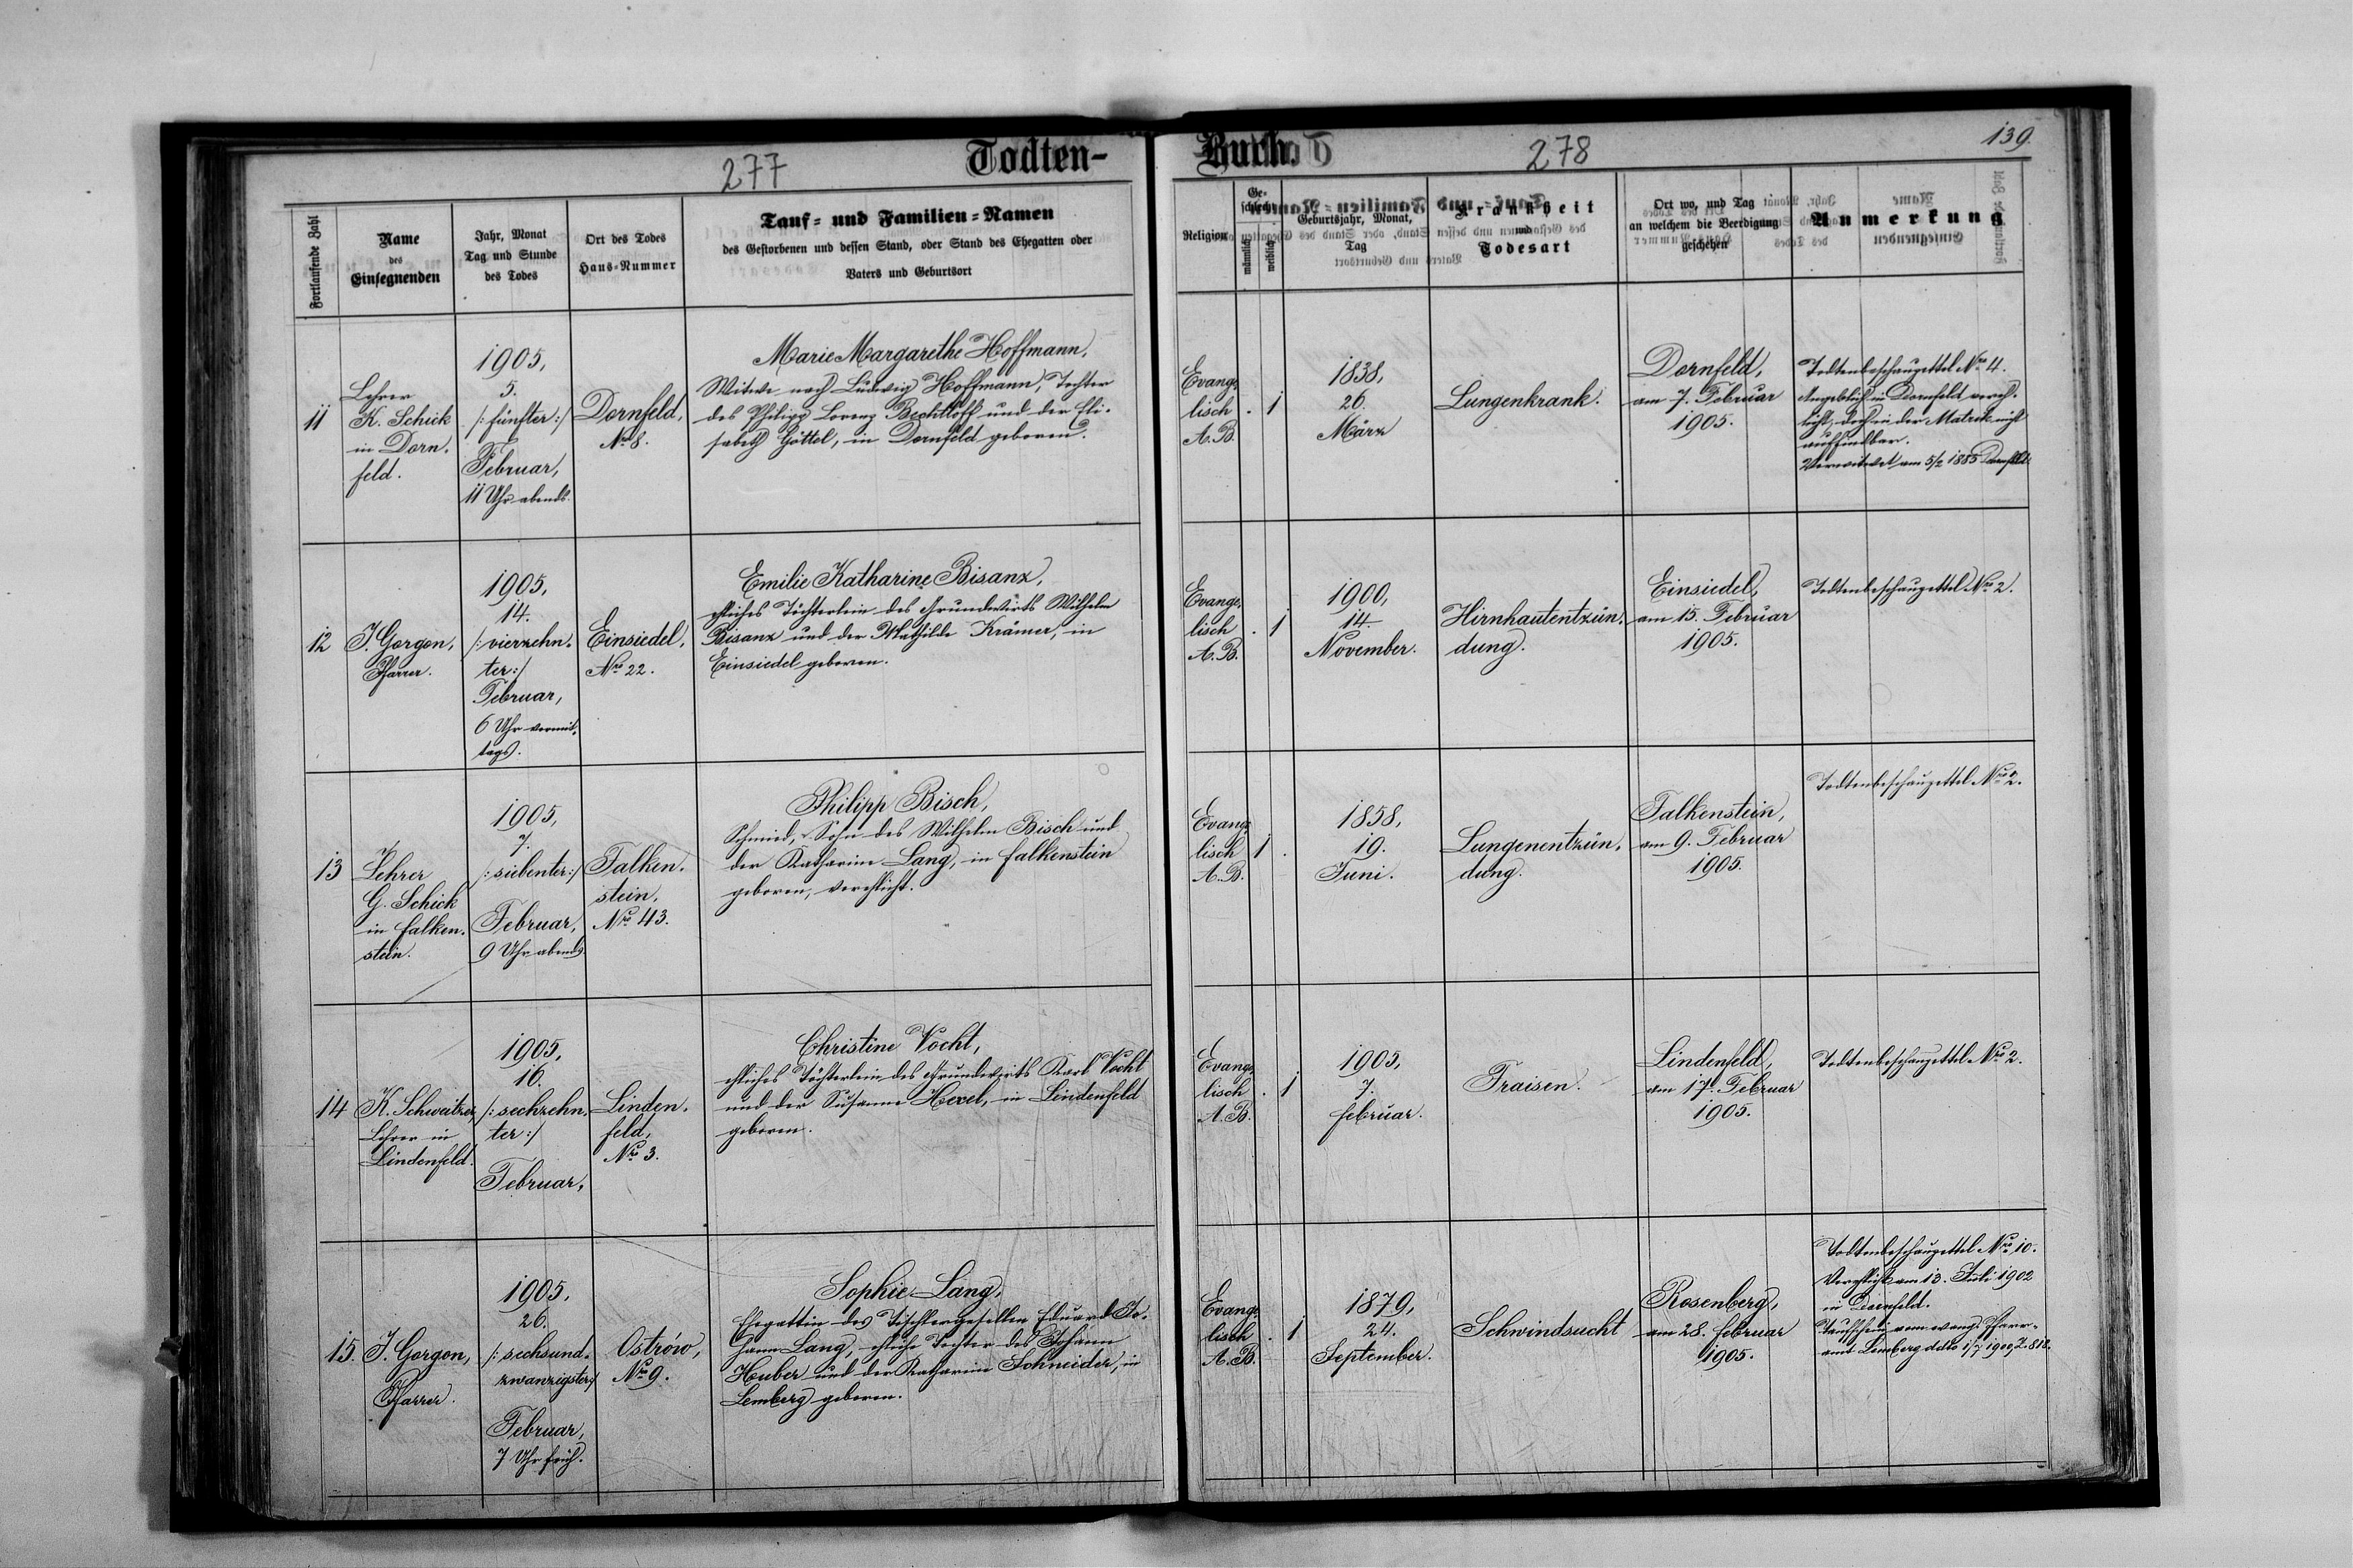 277
Todten-
Buch.
278
139.
Fortlaufende Zahl
Name
des
Einsegnenden
Jahr, Monat
Tag und Stunde
des Todes
Ort des Todes
Haus-Nummer
Tauf- und Familien-Namen
des Gestorbenen und dessen Stand, oder Stand des Ehegatten oder
Vaters und Geburtsort
Religion
Ge-
schlecht
männlich
weiblich
Geburtsjahr, Monat,
Tag
Krankheit
und
Todesart
Ort wo, und Tag
an welchem die Beerdigung
geschehen
Anmerkung
11
Lehrer
K. Schick
in Dorn-
feld.
1905,
5.
/:fünfter:/
Februar,
11 Uhr abends.
Dornfeld,
No 8.
Marie Margarethe Hoffmann,
Witwe nach Ludwig Hoffmann, Tochter
des Philipp Lorenz Bechtloff und der Eli-
sabeth Göttel, in Dornfeld geboren.
Evange-
lisch
A. B.
. 1
1838,
26.
März
Lungenkrank.
Dornfeld,
am 7. Februar
1905.
Todtenbeschauzettel Nro 4.
Angeblich in Dornfeld verehl-
licht, doch in der Matrik nicht
auffindbar.
Verwitwet am 5/2 1885 Dornfeld.
12
J. Gorgon,
Pfarrer.
1905,
14.
/:vierzehn-
ter:/
Februar,
6 Uhr vormit-
tags.
Einsiedel,
Nro 22.
Emilie Katharine Bisanz,
eheliches Töchterlein des Grundwirts Wilhelm
Bisanz und der Mathilde Krämer, in
Einsiedel geboren.
Evange-
lisch
A. B.
. 1
1900,
14.
November.
Hirnhautentzün-
dung.
Einsiedel,
am 15. Februar
1905.
Todtenbeschauzettel Nro 2.
13
Lehrer
G. Schick
in Falken-
stein.
1905,
7.
/:siebenter:/
Februar,
9 Uhr abends.
Falken-
stein,
Nro 43.
Philipp Bisch,
Schmied, Sohn des Wilhelm Bisch und
der Katharine Lang, in Falkenstein
geboren, verehlicht.
Evange-
lisch
A. B.
1 .
1858,
19.
Juni.
Lungenentzün-
dung.
Falkenstein,
am 9. Februar
1905.
Todtenbeschauzettel Nro 2.
14
K. Schweitzer,
Lehrer in
Lindenfeld.
1905,
16.
/:sechzehn-
ter:/
Februar,
Linden-
feld,
Nro 3.
Christine Vocht,
eheliches Töchterlein des Grundwirts Karl Vocht
und der Susanne Hexel, in Lindenfeld
geboren.
Evange-
lisch
A. B.
. 1
1905,
7.
Februar.
Fraisen.
Lindenfeld,
am 17. Februar
1905.
Todtenbeschauzettel Nro 2.
15.
J. Gorgon,
Pfarrer.
1905.
26.
/:sechsund-
zwanzigster:/
Februar,
7 Uhr früh.
Ostrów,
No 9.
Sophie Lang,
Ehegattin des Tischlergesellen Eduard Jo-
hann Lang, eheliche Tochter des Johann
Huber und der Katharine Schneider, in
Lemberg geboren.
Evange-
lisch
A. B.
. 1
1879,
24.
September.
Schwindsucht
Rosenberg,
am 28. Februar
1905.
Todtenbeschauzettel Nro 10.
Verehlicht am 13. Juli 1902
in Dornfeld.
Taufschein vom evang. Pfarr-
amt Lemberg ddto 1/7 1900, Z. 818.